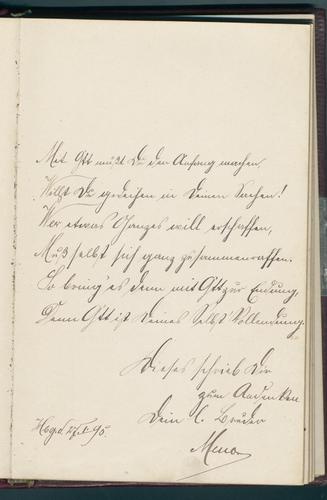 Mit Gott mußt Du den Anfang machen,
Willst Du gedeihen in Deinen Sachen!
Wer etwas Ganzes will erschaffen,
Muß selbst sich ganz zusammenraffen.
So bring' es denn mit Gott zur Endung,
Denn Gott ist Deines Selbst Vollendung.
Dieses schrieb Dir
zum Andenken
Dein l. Bruder
Hbgd. 27. 95.